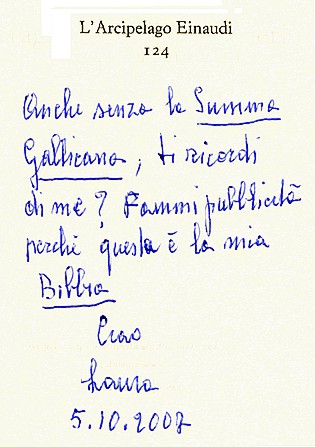 L'Arcipelago Einaudi
124
Anche senza la Summa
Gallicana, ti ricordi
di me? Fammi pubblicità
perché questa è la mia
Bibbia
Ciao
Laura
5.10.2007